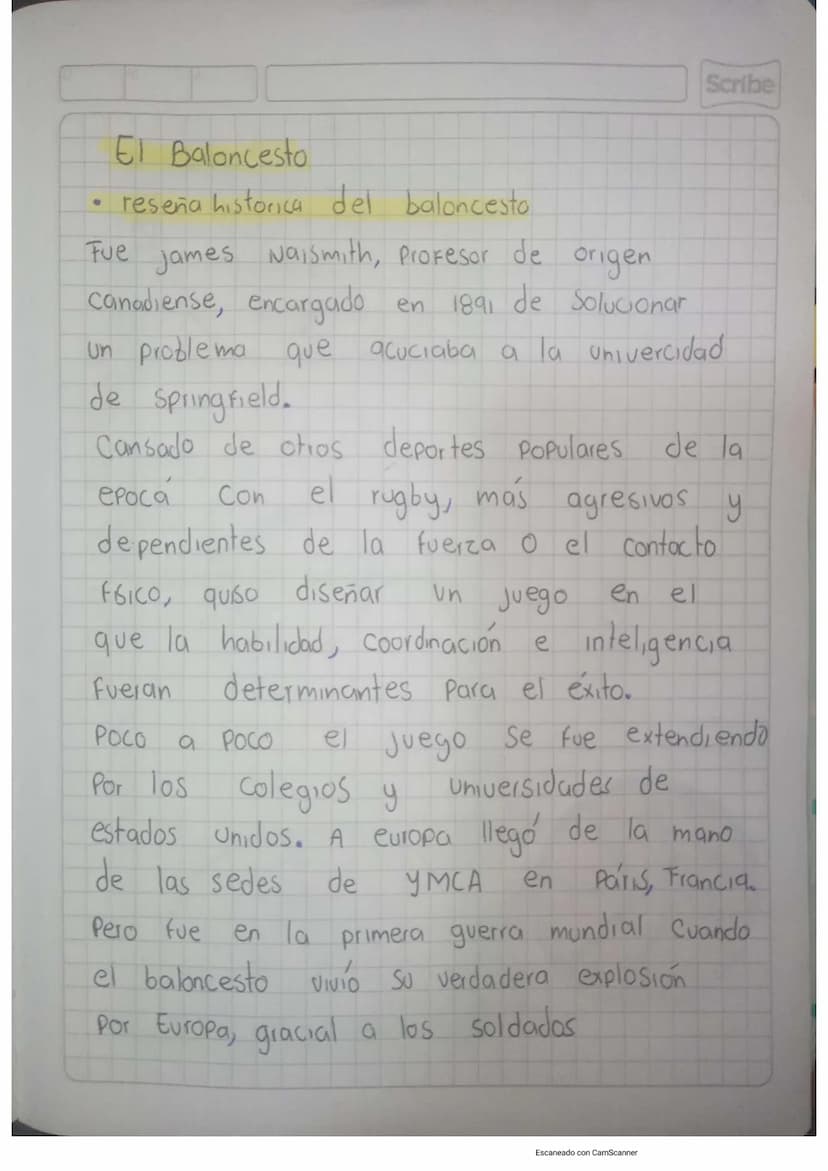 Scribe
El Baloncesto
• reseña historica del baloncesto
Fue james Naismith, Profesor de origen
Canadiense, encargado en 1891 de Solucionar
un problema que acuciaba a la univercidad
de Springfield.
Cansado de otros deportes Populares de la
epocá con el rugby, más agresivos y
dependientes de la fuerza o el contacto
físico, quiso diseñar un juego en el
que la habilidad, coordinación e inteligencia
fueran determinantes para el éxito.
Poco a poco el juego se fue extendiendo
Por los colegios y universidades de
estados unidos. A europa llegó de la mano
de las sedes de YMCA en París, Francia.
Pero fue en la primera guerra mundial Cuando
el baloncesto vivío su verdadera explosión
Por Europa, gracial a los soldados
Escaneado con CamScanner